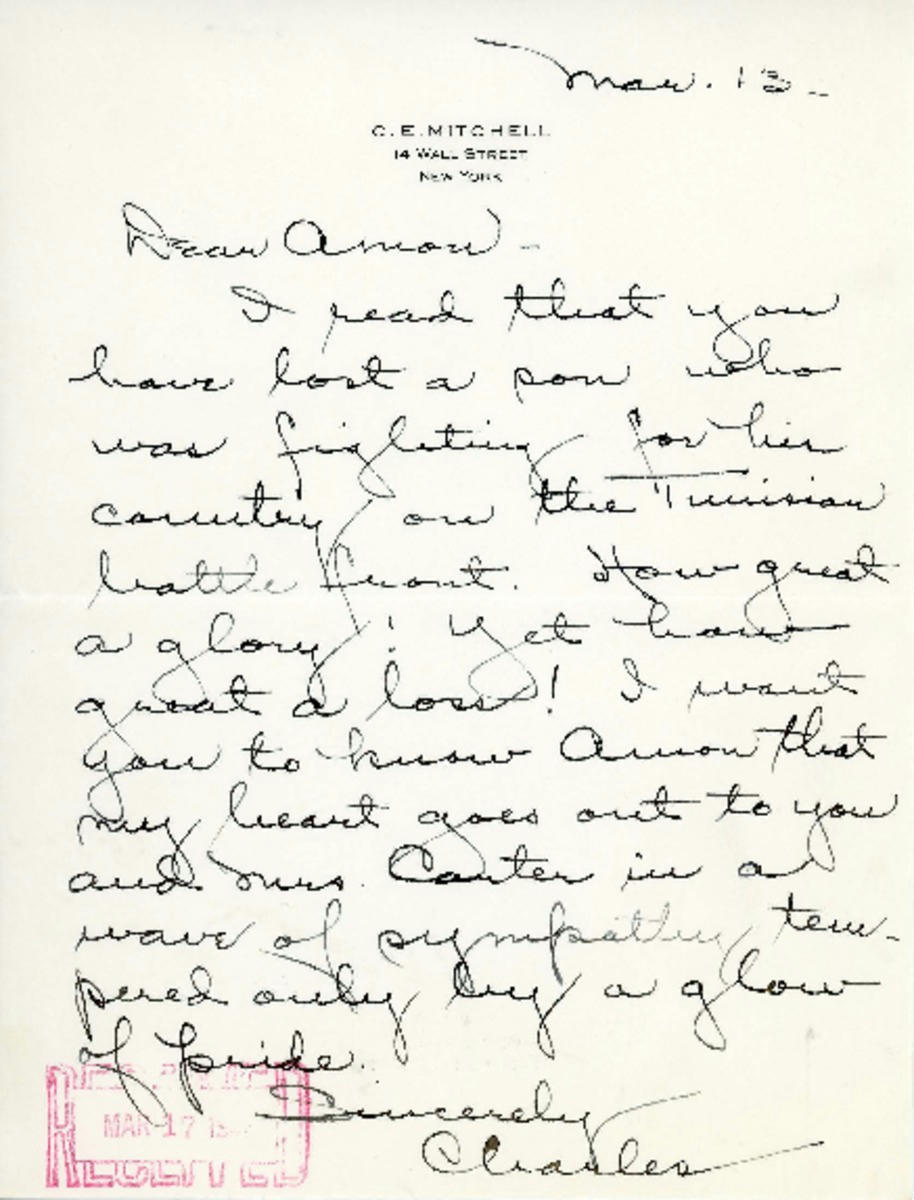 Mar. 13 -
C. E. MITCHELL
14 WALL STREET
NEW YORK
Dear Amon -
I read that you
have lost a son who
was fighting for his
country on the Tunisian
battle front. How great
a glory! Yet how
great a loss! I want
you to know Amon that
my heart goes out to you
and Mrs. Carter in a
wave of sympathy tem-
pered only by a glow
of pride.
Sincerely
Charles
MAR 17
RECEIVED